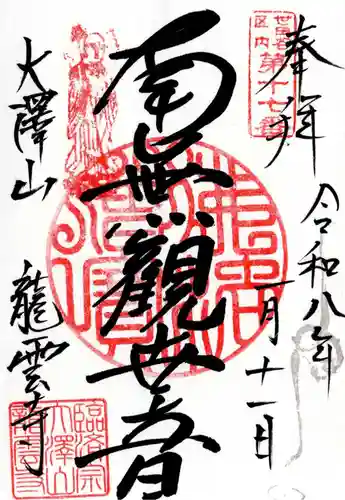 奉拝
令和八年
一月十一日
世田谷
区内
第十七番
南無觀世音
大澤山
龍雲寺
臨済宗
大澤山
龍雲寺